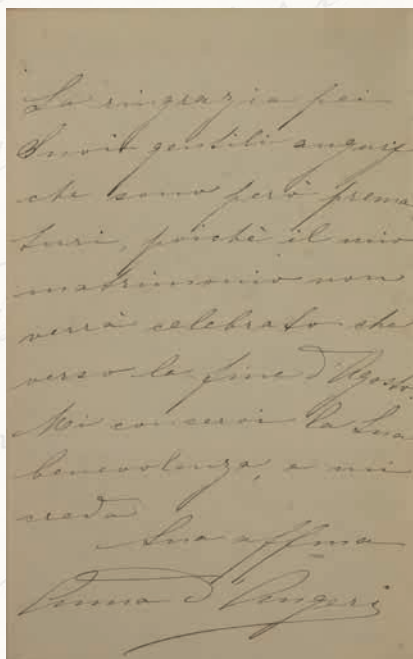 La ringrazio pei
Suoi gentili auguri
che sono però prema
turi, poichè il mio
matrimonio non
verrà celebrato che
verso la fine d'Agosto.
Mi conservi la Sua
benevolenza, e mi
creda
Sua affma
Anna d'Angeri